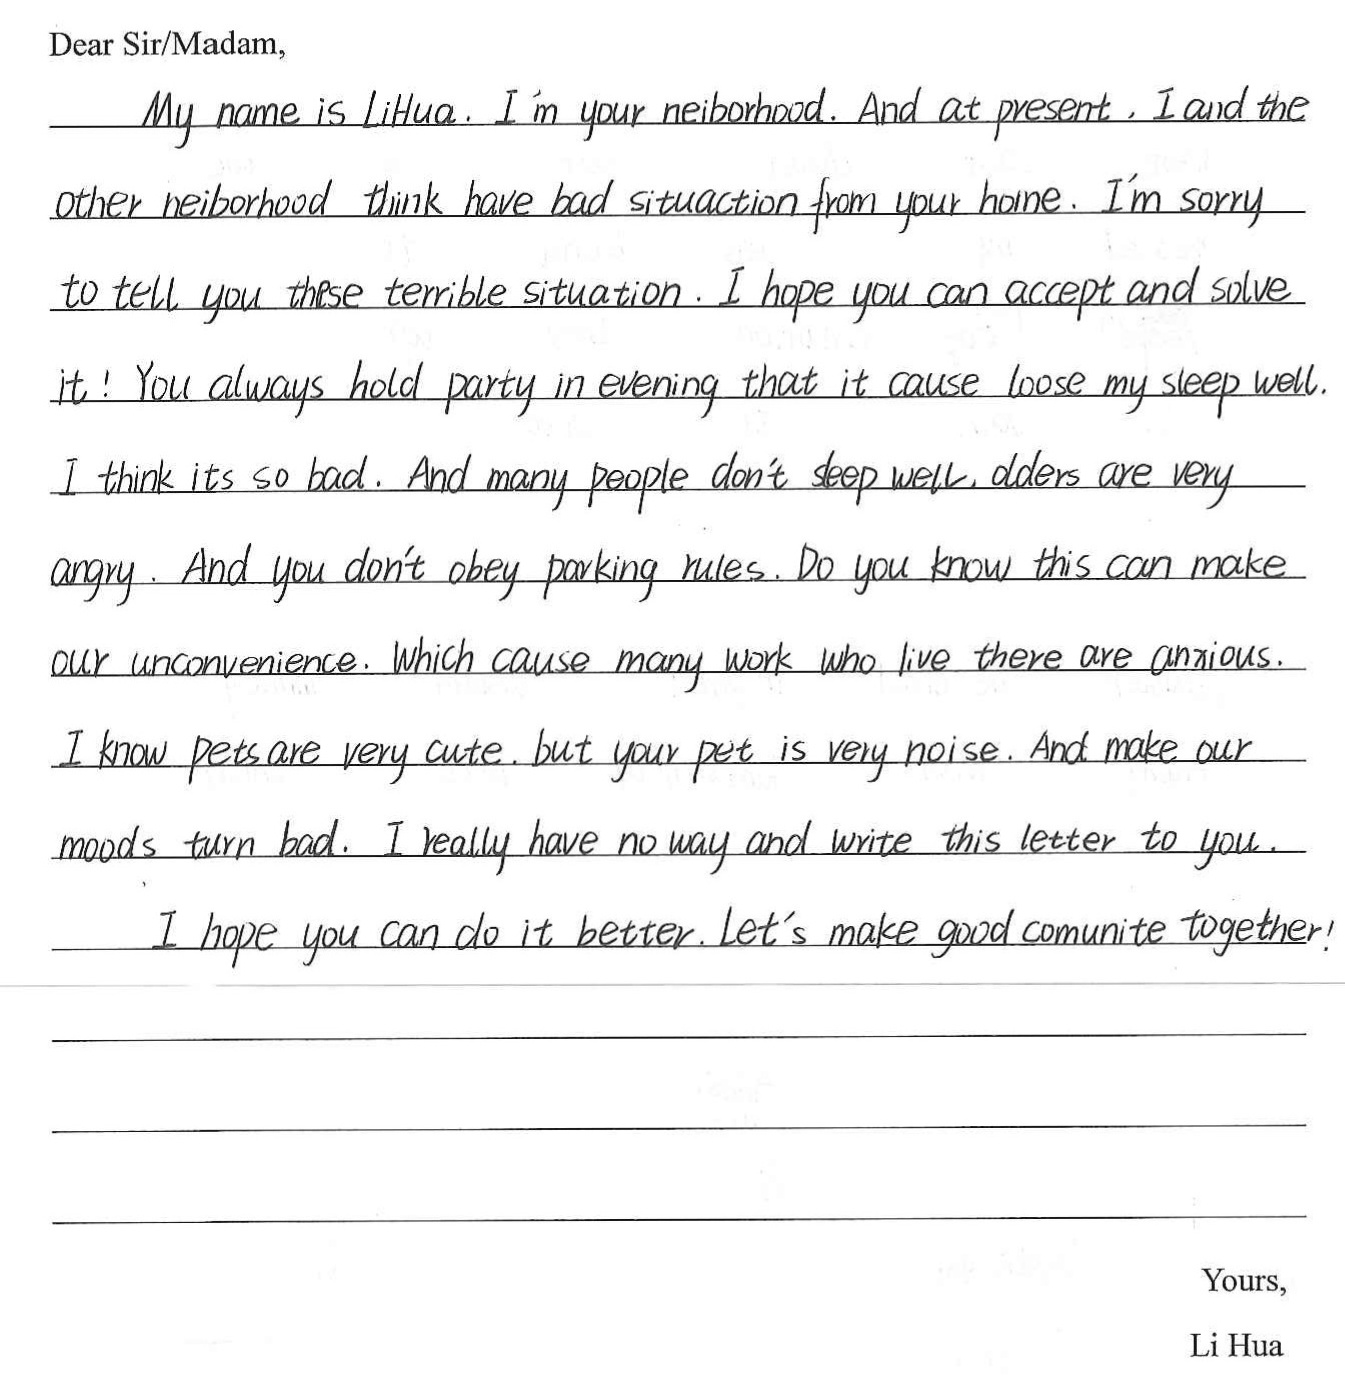 Dear Sir/Madam,
My name is LiHua. I'm your neiborhood. And at present, I and the
other neiborhood think have bad situaction from your home. I'm sorry
to tell you these terrible situation. I hope you can accept and solve
it! You always hold party in evening that it cause loose my sleep well.
I think its so bad. And many people don't sleep well, olders are very
angry. And you don't obey parking rules. Do you know this can make
our unconvenience. Which cause many work who live there are anxious.
I know pets are very cute. but your pet is very noise. And make our
moods turn bad. I really have no way and write this letter to you.
I hope you can do it better. Let's make good comunite together!
Yours,
Li Hua